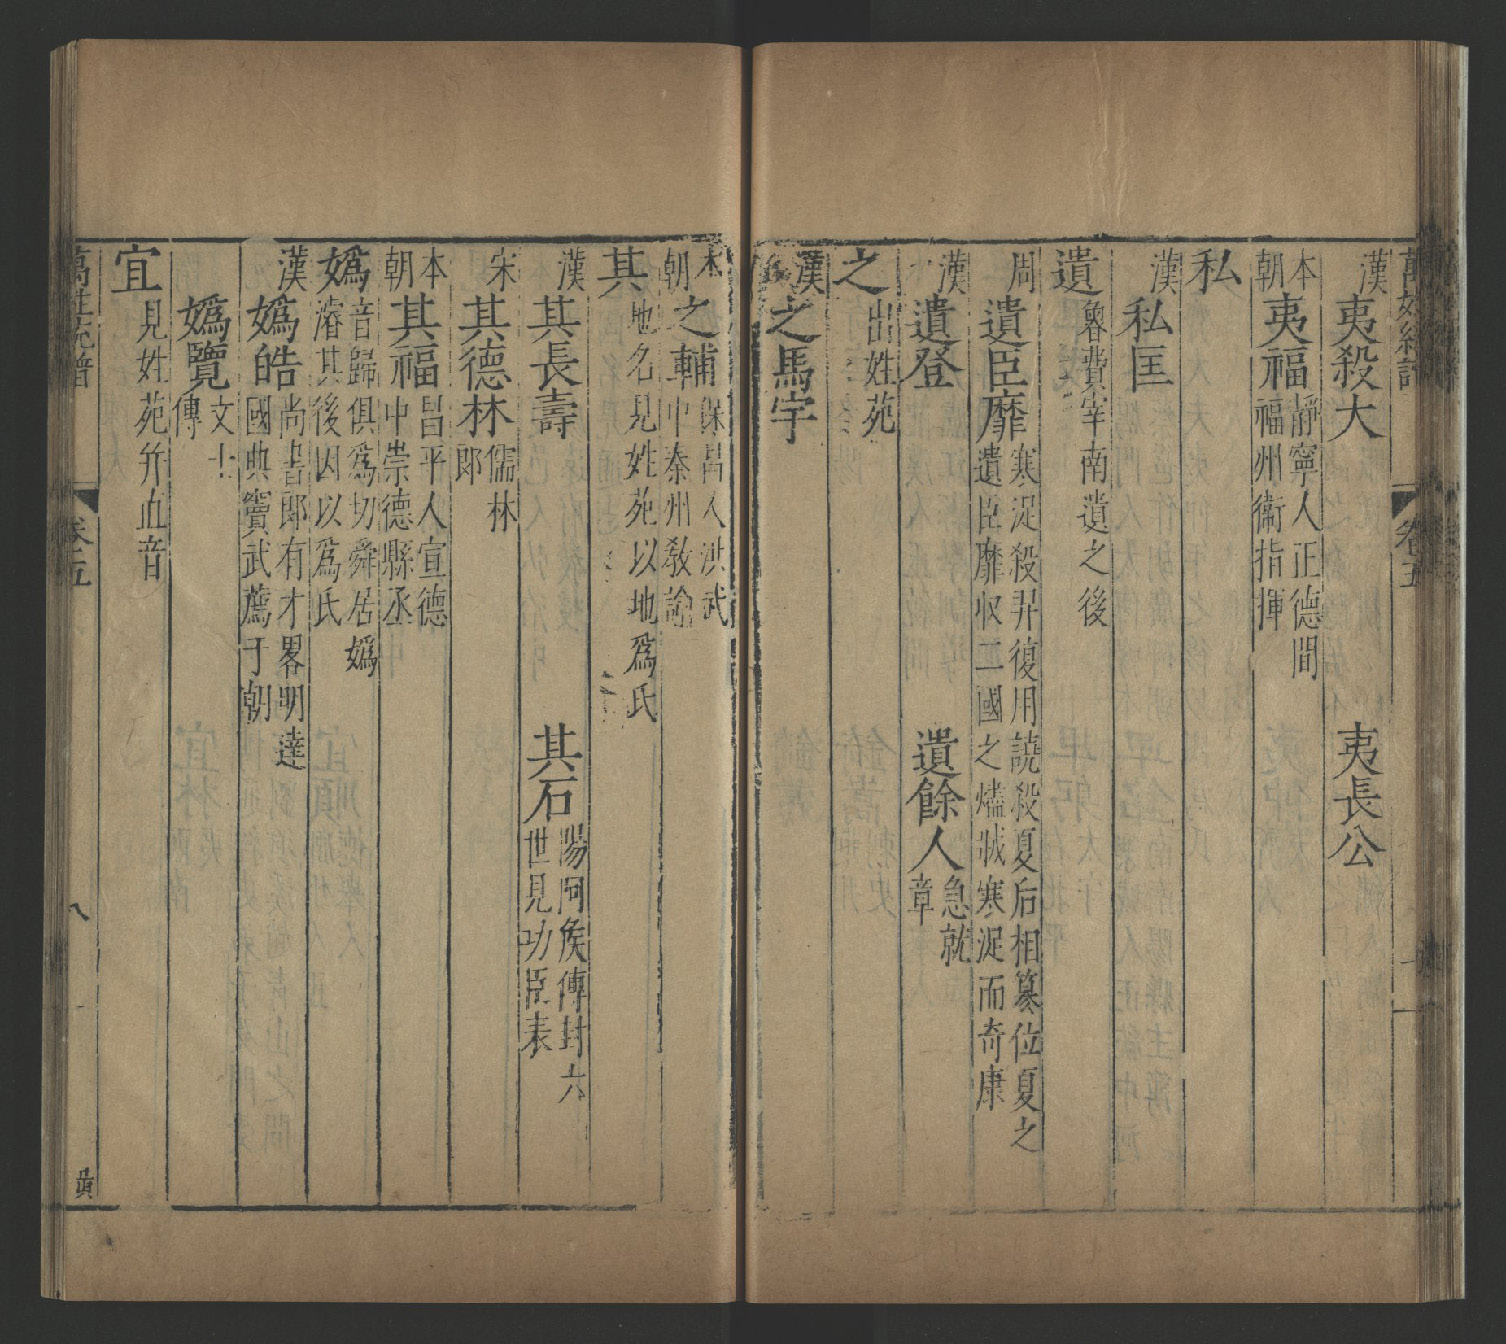 萬姓統譜 卷五
漢 夷殺大 夷長公
本朝 夷福 靜寧人正德間
福州衛指揮
私
漢 私匡
遺 魯費宰南遺之後
周 遺臣靡 寒浞殺羿復用譊殺夏后相篡位夏之
遺臣靡收二國之燼戕寒浞而奇康
漢 遺登 遺餘人 急就
章
之 出姓苑
漢 之馬宇
本朝 之輔 保昌人洪武
中秦州教諭
其 地名見姓苑以地爲氏
漢 其長壽 其石 陽阿侯傳封六
世見功臣表
宋 其德林 儒林
郎
本朝 其福 昌平人宣德
中崇德縣丞
嬀 音歸俱爲切舜居嬀
濬其後因以爲氏
漢 嬀皓 尚書郎有才畧明達
國典竇武薦于朝
嬀覽 文士
傳
宜 見姓苑并血音
萬姓統譜 卷五 八